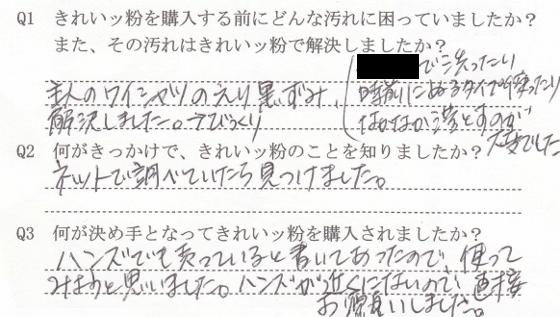 Q1 きれいッ粉を購入する前にどんな汚れに困っていましたか？
また、その汚れはきれいッ粉で解決しましたか？
主人のワイシャツのえり黒ずみ、
解決しました。→びっくり
で洗ったり
時前にぬるタイプを使ったり
なかなか落とすのが
大変でした
Q2 何がきっかけで、きれいッ粉のことを知りましたか？
ネットで調べていたら見つけました。
Q3 何が決め手となってきれいッ粉を購入されましたか？
ハンズでも売っていると書いてあったので、使って
みようと思いました。ハンズが近くにないので、直接
お願いしました。